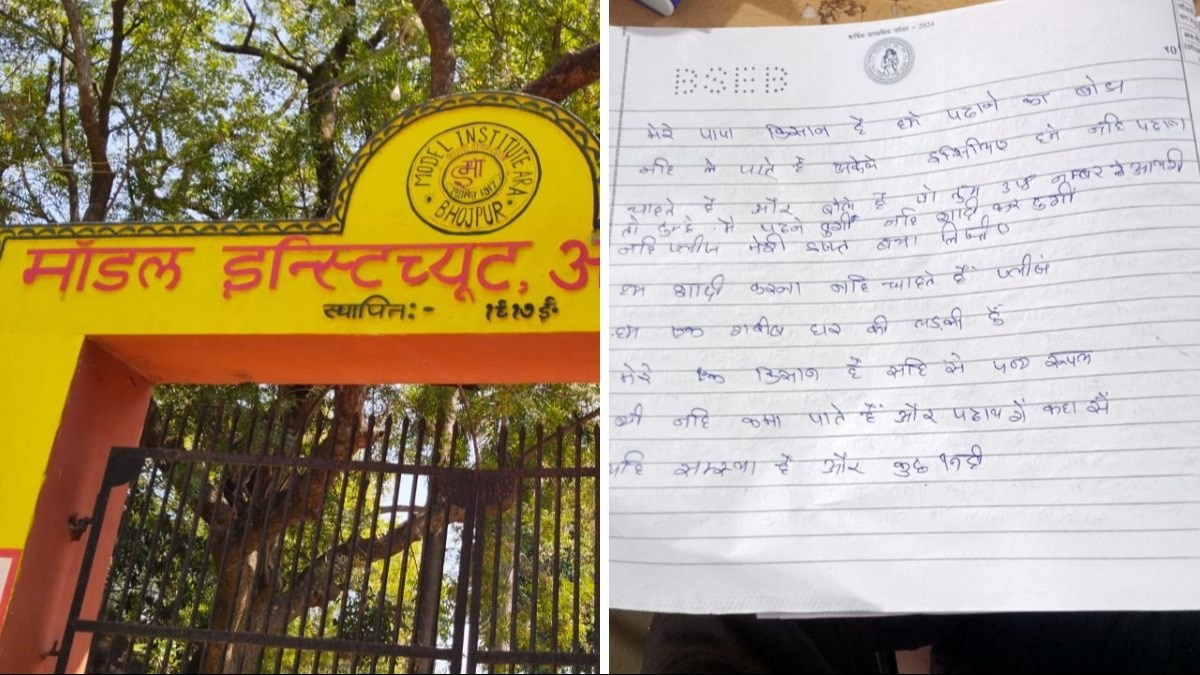 MODEL INSTITUTE ARA
मा
स्थापित 1917
BHOJPUR
मॉडल इन्स्टिच्यूट, अ
स्थापित:- १९१७ ई॰
वार्षिक माध्यमिक परीक्षा - 2024
BSEB
10
मेरे पापा किसान है हमे पढाने का बोझ
नहि ले पाते है अकेले इसिलिए हमे नहि पढाना
चाहते है और बोले है जो तुम उप्र नम्बर से आयगी
तो तुम्हे मै पढने दुगाँ नहि शादी कर दुगाँ
नहि प्लीज मेरी इज्जत बचा लिजीए
हम शादी करना नहि चाहते हैं प्लीज
हम एक गरीब घर की लड़की हुँ
मेरे एक किसान है सहि से पन्द्र रूपया
भी नहि कमा पाते हैं और पढायगें कहा सें
यहि समस्या है और कुछ नही